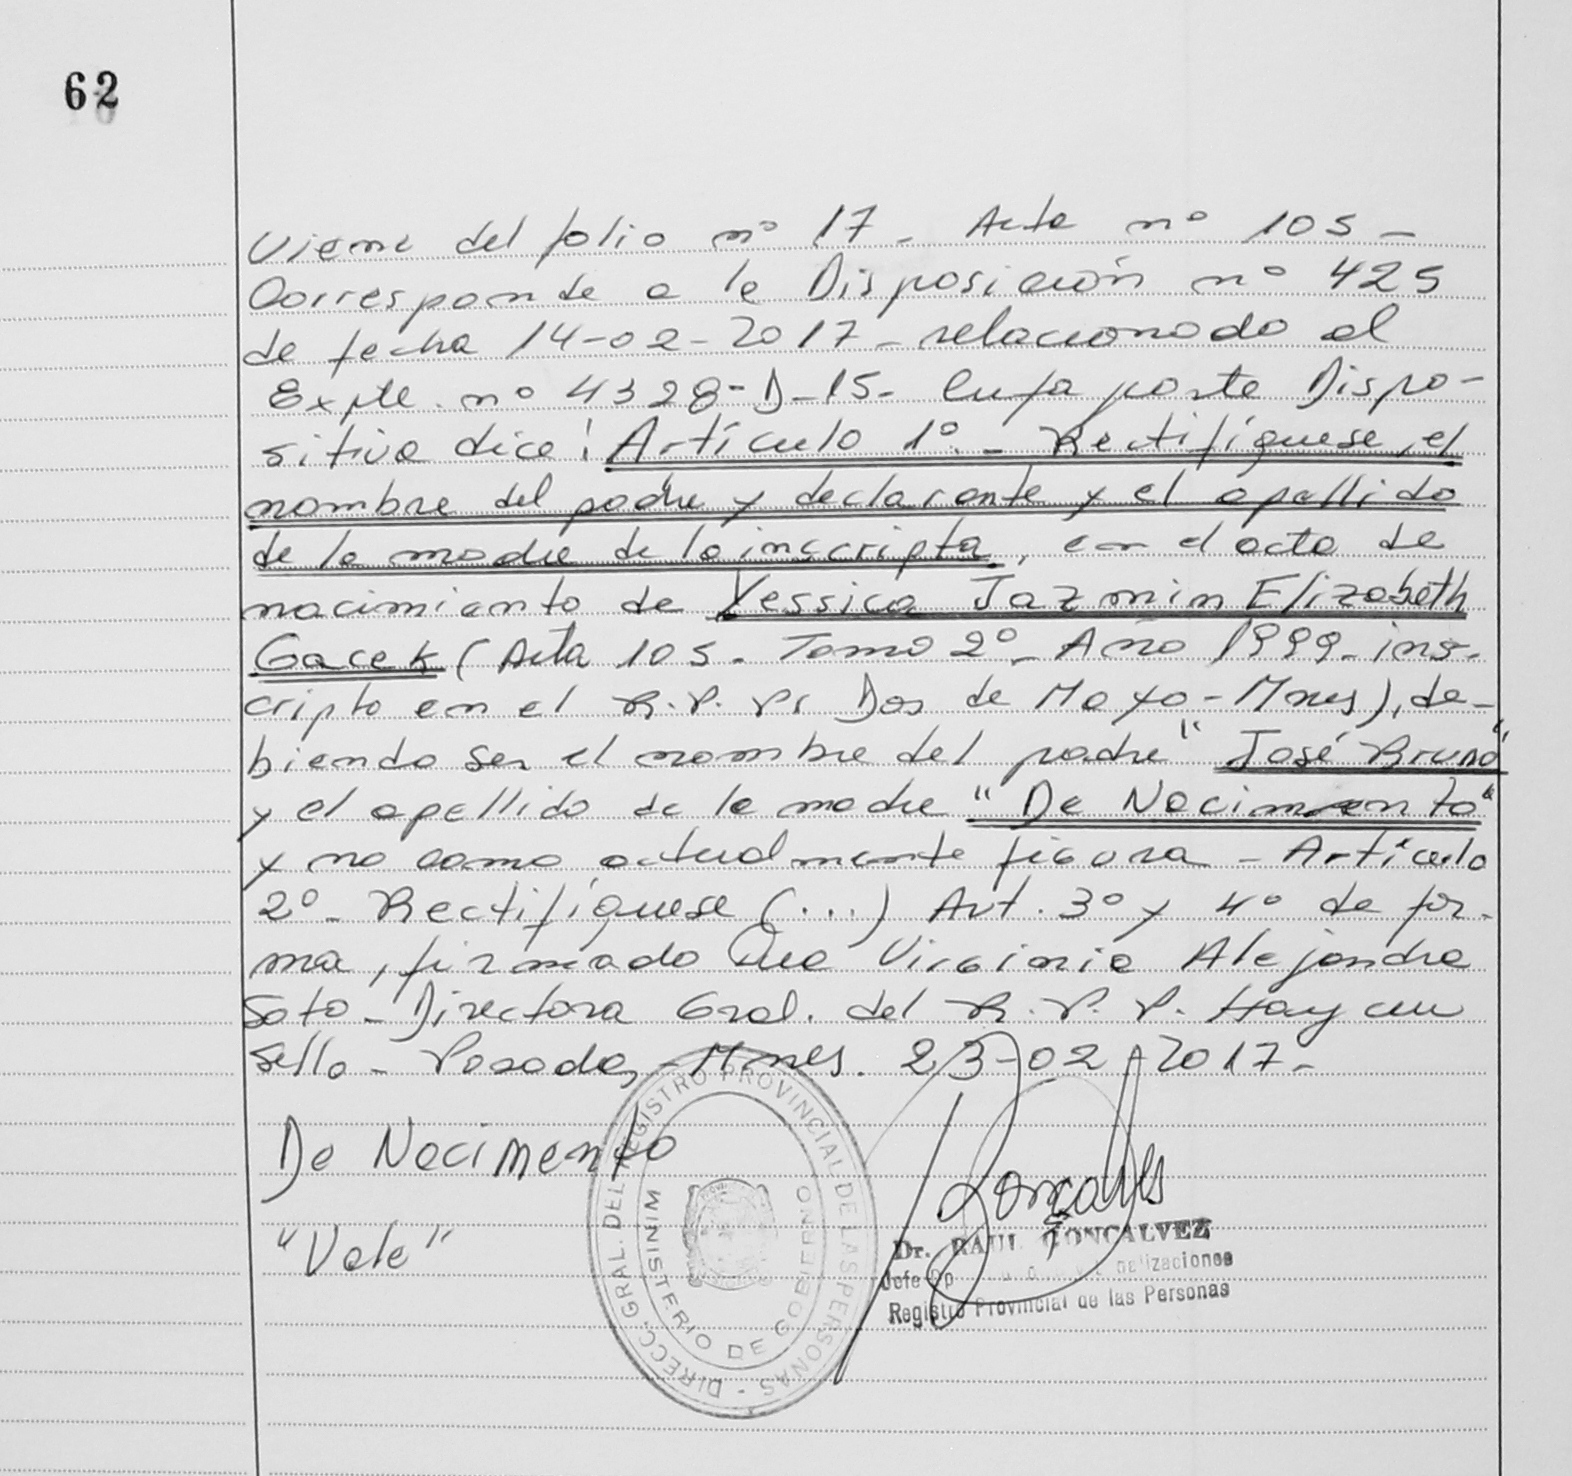 62
Viene del folio nº 17 - Acta nº 105 -
Corresponde a la Disposición nº 425
de fecha 14-02-2017 - relacionado al
Expte. nº 4328-D-15- Cuya parte Dispo-
sitiva dice: Artículo 1º - Rectifíquese, el
nombre del padre y declarante y el apellido
de la madre de la inscripta, en el acta de
nacimiento de Yessica Jazmin Elizabeth
Gacek (Acta 105. Tomo 2º - Año 1999 - ins-
cripto en el R.P.Ps Dos de Mayo - Mnes), de-
biendo ser el nombre del padre "José Bruno",
y el apellido de la madre "De Nacimento"
y no como actualmente figura - Artículo
2º - Rectifíquese (...) Art. 3º y 4º de for-
ma, firmado Dra Virginia Alejandra
Soto - Directora Gral. del R.P.P. Hay un
sello - Posadas, - Mnes. 23-02-2017 -
De Nacimento
"Vale"
DIRECC. GRAL. DEL REGISTRO PROVINCIAL DE LAS PERSONAS -
MINISTERIO DE GOBIERNO
Dr. RAUL GONCALVEZ
Jefe Dp
Registro Provincial de las Personas